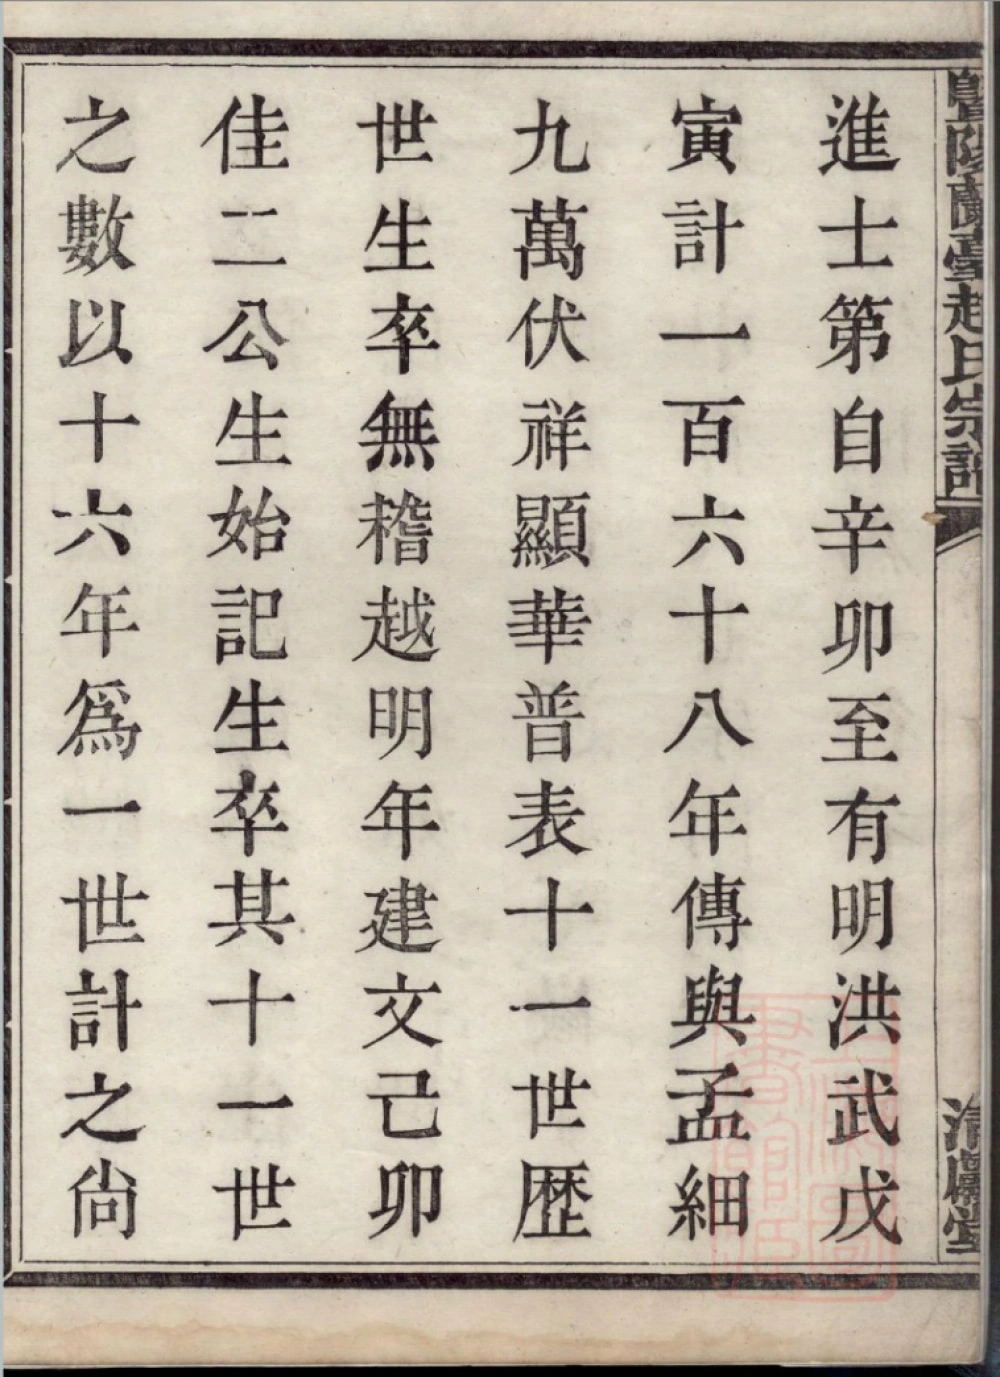 暨陽蘭臺趙氏宗譜
清獻堂
進士第自辛卯至有明洪武戊
寅計一百六十八年傳與孟細
九萬伏祥顯華普表十一世歴
世生卒無稽越明年建文己卯
佳二公生始記生卒其十一世
之數以十六年為一世計之尙